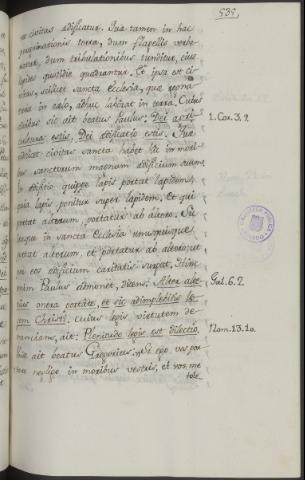 535.
ec civitas ædificatur. Quæ tamen in hac
peregrinationis terra, dum flagellis verbe
ratur, dum tribulationibus tunditur, eius
lapides quotidie quadrantur. Et ipsa est ci
vitas, scilicet sancta Ecclesia, quæ regna
tura in cælo, adhuc laborat in terra. Cuius
civibus sic ait beatus Paulus: Dei agri-
cultura estis, Dei ædificatio estis.
1. Cor. 3. 9.
civitas sancta habet hic in mori
bus sanctorum magnum ædificium suum.
In ædificio quippe lapis portat lapidem,
quia lapis ponitur super lapidem. Et qui
portat alterum, portatur ab altero. Sic
itaque in sancta Ecclesia unusquisque
portat alterum, et portatur ab altero, ut
ex eos ædificium caritatis surgat. Hinc
enim Paulus admonet, dicens: Alter alte
rius onera portate, et sic adimplebitis le
Gal. 6. 2.
gem Christi. Cuius legis virtutem de-
nuncians, ait: Plenitudo legis est dilectio.
Rom. 13. 10.
ait beatus Gregorius. Si ego vos por
tare negligo in moribus vestris, et vos me
tole